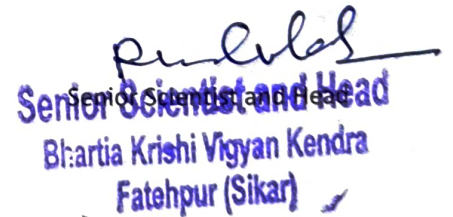 Senior Scientist and Head
Senior Scientist and Head
Bhartia Krishi Vigyan Kendra
Fatehpur (Sikar)